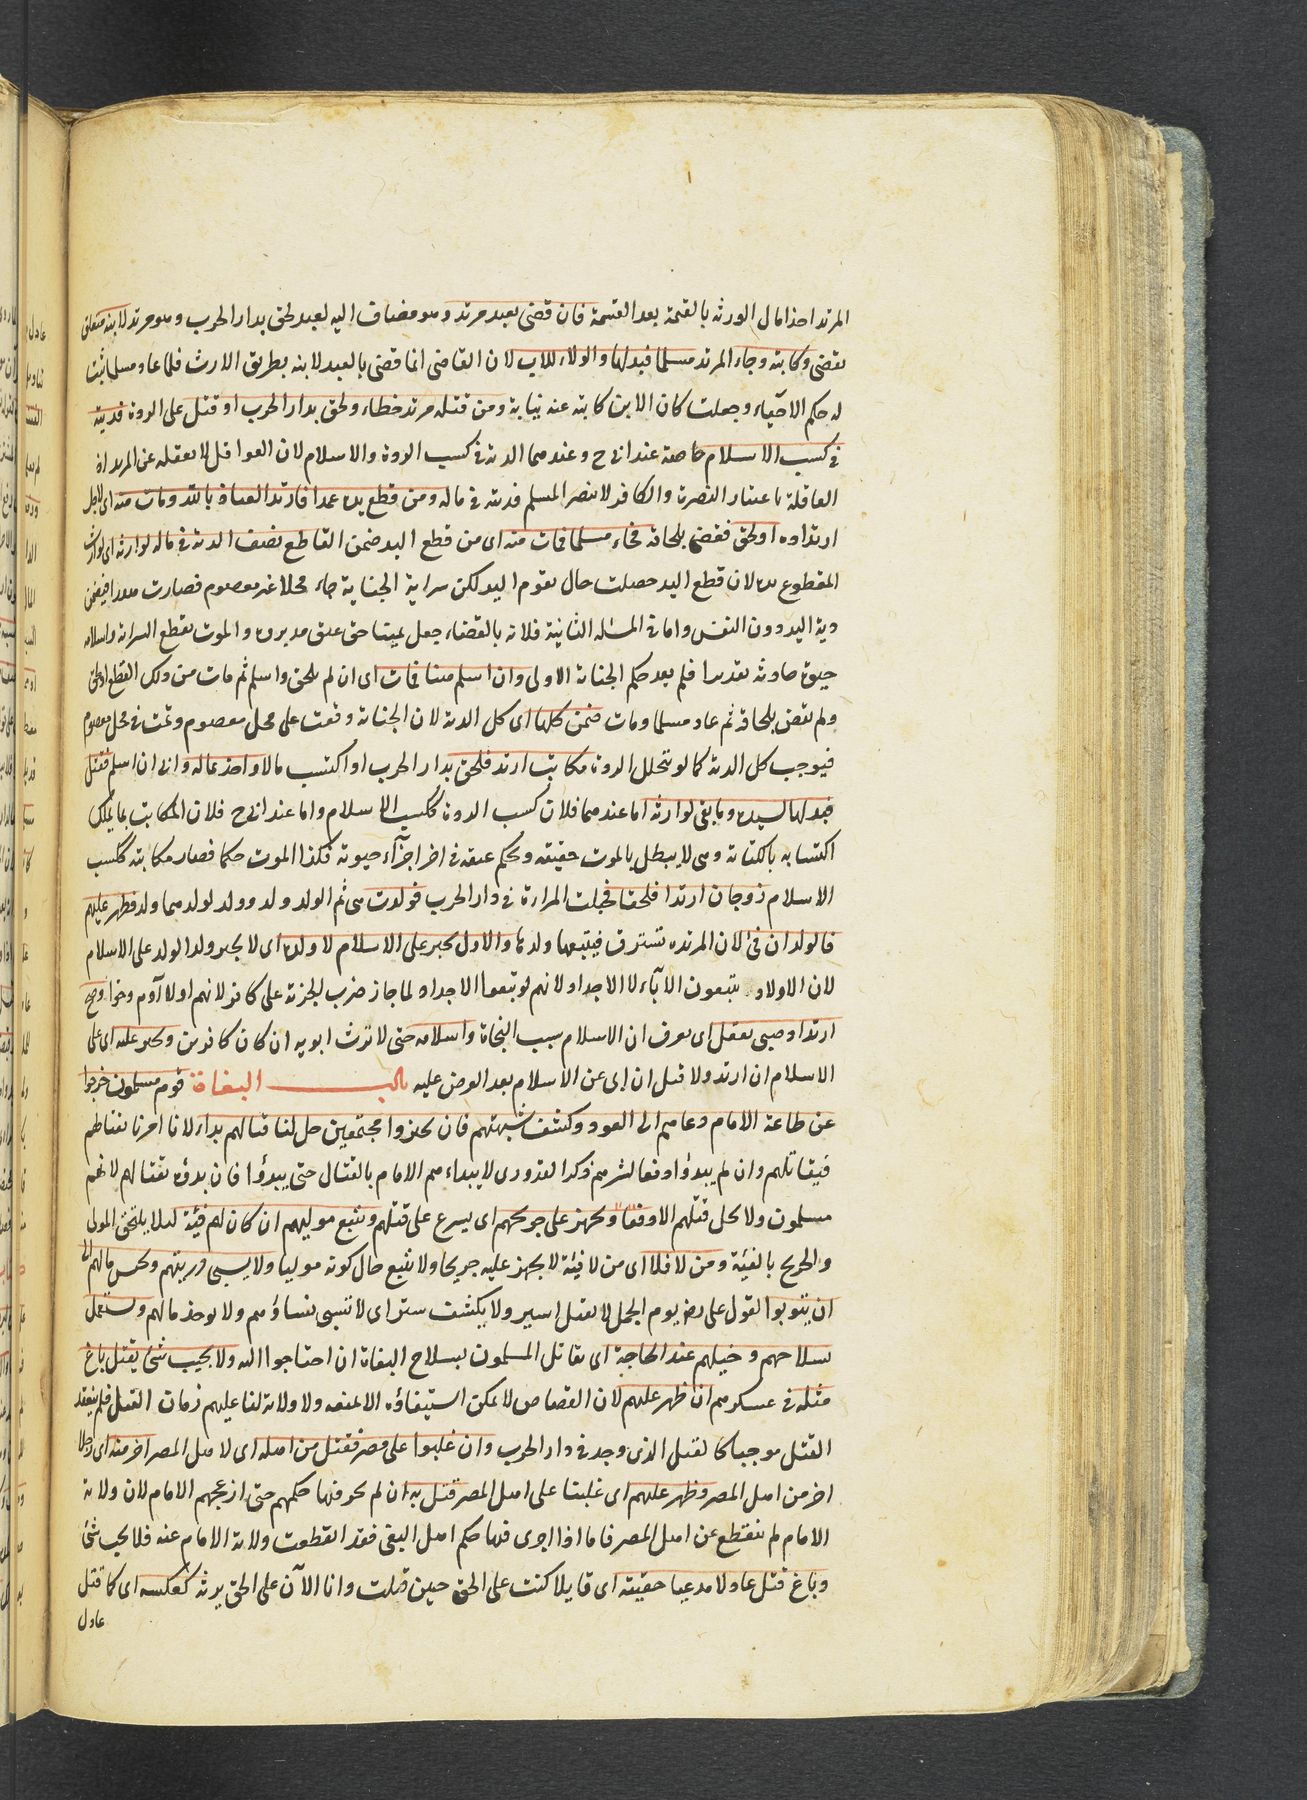 المرتد اخذا مال الورثه بالقتمة بعد القسمة فان قضى بعبد مرتد وهو مضاف اليه لعبد لحق بدار الحرب وهو مرتد لابنه متعلق
بقضى وكاتبه وجاء المرتد مسلما فبدلها والولاء للاب لان القاضى انما قضى بالعبد لابنه بطريق الارث فلما عاد مسلما ثبت
له حكم الاحياء وجعلت كان الابن كاتبه عنه نيابة ومن قتله مرتد خطاء ولحق بدار الحرب او قتل على الردة فديته
فى كسب الاسلام خاصة عند ابى ح وعندهما الدية فى كسب الردة والاسلام لان العواقل لا تعقله عن المرتد اذ
العاقلة باعتبار النصرة والكافر لا ينصر المسلم فديته فى ماله ومن قطع يده عمدا فارتد العياذ بالله ومات منه اى لاجل
ارتداده او لحق فقضى بلحاقه فجاء مسلما فمات منه اى من قطع اليد ضمن القاطع نصف الدية فى ماله لوارثه اى لوارث
المقطوع يده لان قطع اليد حصلت حال تقوم اليد لكن سراية الجناية جاء محلا غير معصوم فصارت هدرا فيضمن
دية اليد دون النفس واما فى المسئله الثانية فلانه بالقضاء جعل ميتا حتى عتق مدبروه والموت يقطع السراية واسلامه
حيوة حادثه تقديرا فلم يعد حكم الجناية الاولى وان اسلم هنا فمات اى ان لم يلحق واسلم ثم مات من ذلك القطع او لحق
ولم يقض بلحاقه ثم عاد مسلما ومات ضمن كلها اى كل الدية لان الجناية وقعت على محل معصوم وتمت فى محل معصوم
فيوجب كل الدية كما لو تخلل الردة مكاتب ارتد فلحق بدار الحرب او اكتسب مالا واخذ بماله وابى ان اسلم فقتل
فبدلها لسيده وما بقى لوارثه اما عندهما فلان كسب الردة ككسب الاسلام واما عند ابى ح فلان المكاتب بما يملك
اكتسابه بالكتابة وهى لا يبطل بالموت حقيقه ويحكم عتقه فى اخر اجزآء حيوته فكذا الموت حكما فصار مكاتبه ككسب
الاسلام زوجان ارتدا فلحقا فحبلت المراءة فى دار الحرب فولدت هى ثم الولد ولد وولد لولدهما ولد فظهر عليهم
فالولدان فىء لان المرتده تسترق فيتبعها ولدها والاول يجبر على الاسلام لا ولده اى لا يجبر ولد الولد على الاسلام
لان الاولاد يتبعون الاٰباء لا الاجداد لانهم لو تبعوا الاجداد لما جاز ضرب الجزية على كافر لانهم اولاد آدم وحوا وصح
ارتداد صبى يعقل اى يعرف ان الاسلام سبب النجاة واسلامه حتى لا ترث ابويه ان كان كافرين ويجبر عليه اى على
الاسلام ان ارتد ولا قتل ان ابى عن الاسلام بعد العرض عليه باب البغاة قوم مسلمون خرجوا
عن طاعة الامام دعاهم الى العود وكشف شبهتهم فان تحيزوا مجتمعين حل لنا قتالهم بداء لانا امرنا بقتالهم
فيقاتلهم وان لم يبدؤا دفعا لشرهم ذكر القدورى لا يبداءهم الامام بالقتال حتى يبدؤا فان بدؤه بقتالهم لانهم
مسلمون ولا يحل قتلهم الا دفعا ويجهز على جريحهم اى يسرع على قتلهم ويتبع موليهم ان كان لهم فئة لئلا يلتحق المولى
والجريح بالفئة ومن لا فلا اى من لا فئة لا يجهز عليه جريحا ولا يتبع حال كونه موليا ولا يسبى ذريتهم ويحبس مالهم الى
ان يتوبوا لقول على رضـ يوم الجمل لا يقتل اسير ولا يكشف ستر اى لا تسبى نساؤهم ولا يوخذ مالهم ويستعمل
سلاحهم وخيلهم عند الحاجة اى يقاتل المسلمون بسلاح البغاة ان احتاجوا اليه ولا يجب شئ بقتل باغ
مثله فى عسكرهم ان ظهر عليهم لان القصاص لا يمكن استيفاؤه الا بمنعه ولا ولاية لنا عليهم زمان القتل فلم ينعقد
القتل موجبا كالقتل الذى وجد فى دار الحرب وان غلبوا على مصر فقتل من اهله اى لا هل المصر اخر منه اى رجلا
اخر من اهل المصر وظهر عليهم اى غلبنا على اهل المصر قتل به ان لم يجر فيها حكمهم حتى ازعجهم الامام لان ولاية
الامام لم تنقطع عن اهل المصر فاما اذا اجرى فيها حكم اهل البغى فقد انقطعت ولاية الامام عنه فلا يجب شئ
وباغ قتل عادلا مدعيا حقيته اى قايلا كنت على الحق حين قتلت وانا الآن على الحق يرثه كعكسه اى كما قتل
عادل